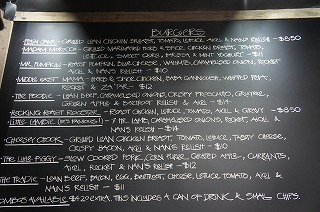 BURGERS
PLAIN JANE - GRILLED LEAN CHICKEN BREAST, TOMATO, LETTUCE, AIOLI & NAN'S RELISH - $8.50
MADAM MOROCCO - GRILLED MARINATED HERB & SPICE CHICKEN BREAST, TOMATO,
LETTUCE, SWEET CHILLI, & NAN'S RELISH - $10
MR. PUMPKIN - ROAST PUMPKIN, BLUE CHEESE, WALNUTS, CARAMELISED ONION, ROCKET
AIOLI & NAN'S RELISH - $10
MIDDLE EAST MAMA - HERB & SPICE CHICKEN, BABA GANNOUSH, WHIPPED FETA,
ROCKET & ZA'TAR - $12
THE FOODIE - LEAN BEEF, CARAMELISED ONIONS, CRISPY PROSCIUTTO, GRUYERE,
GREEN APPLE & BEETROOT RELISH & AIOLI - $14
ROCKING ROAST ROOSTER - ROAST CHICKEN, LETTUCE, TOMATO, AIOLI & GRAVY - $8.50
LUKE LAMBIE (IT'S FAMOUS!) - LAMB, CARAMELISED ONIONS, ROCKET, AIOLI &
NAN'S RELISH - $14
CHEESEY CHOOK - GRILLED LEAN CHICKEN BREAST, TOMATO, LETTUCE, TASTY CHEESE,
CRISPY BACON, AIOLI & NAN'S RELISH - $10
THE LITTLE PIGGY - SLOW COOKED PORK, GRATED APPLE, CURRANTS,
AIOLI, ROCKET & NAN'S RELISH - $12
THE TRADIE - LEAN BEEF, BACON, EGG, BEETROOT, CHEESE, LETTUCE, TOMATO, AIOLI &
NAN'S RELISH - $11
COMBOS AVAILABLE $4.20 EXTRA, THIS INCLUDES A CAN OF DRINK & SMALL CHIPS.